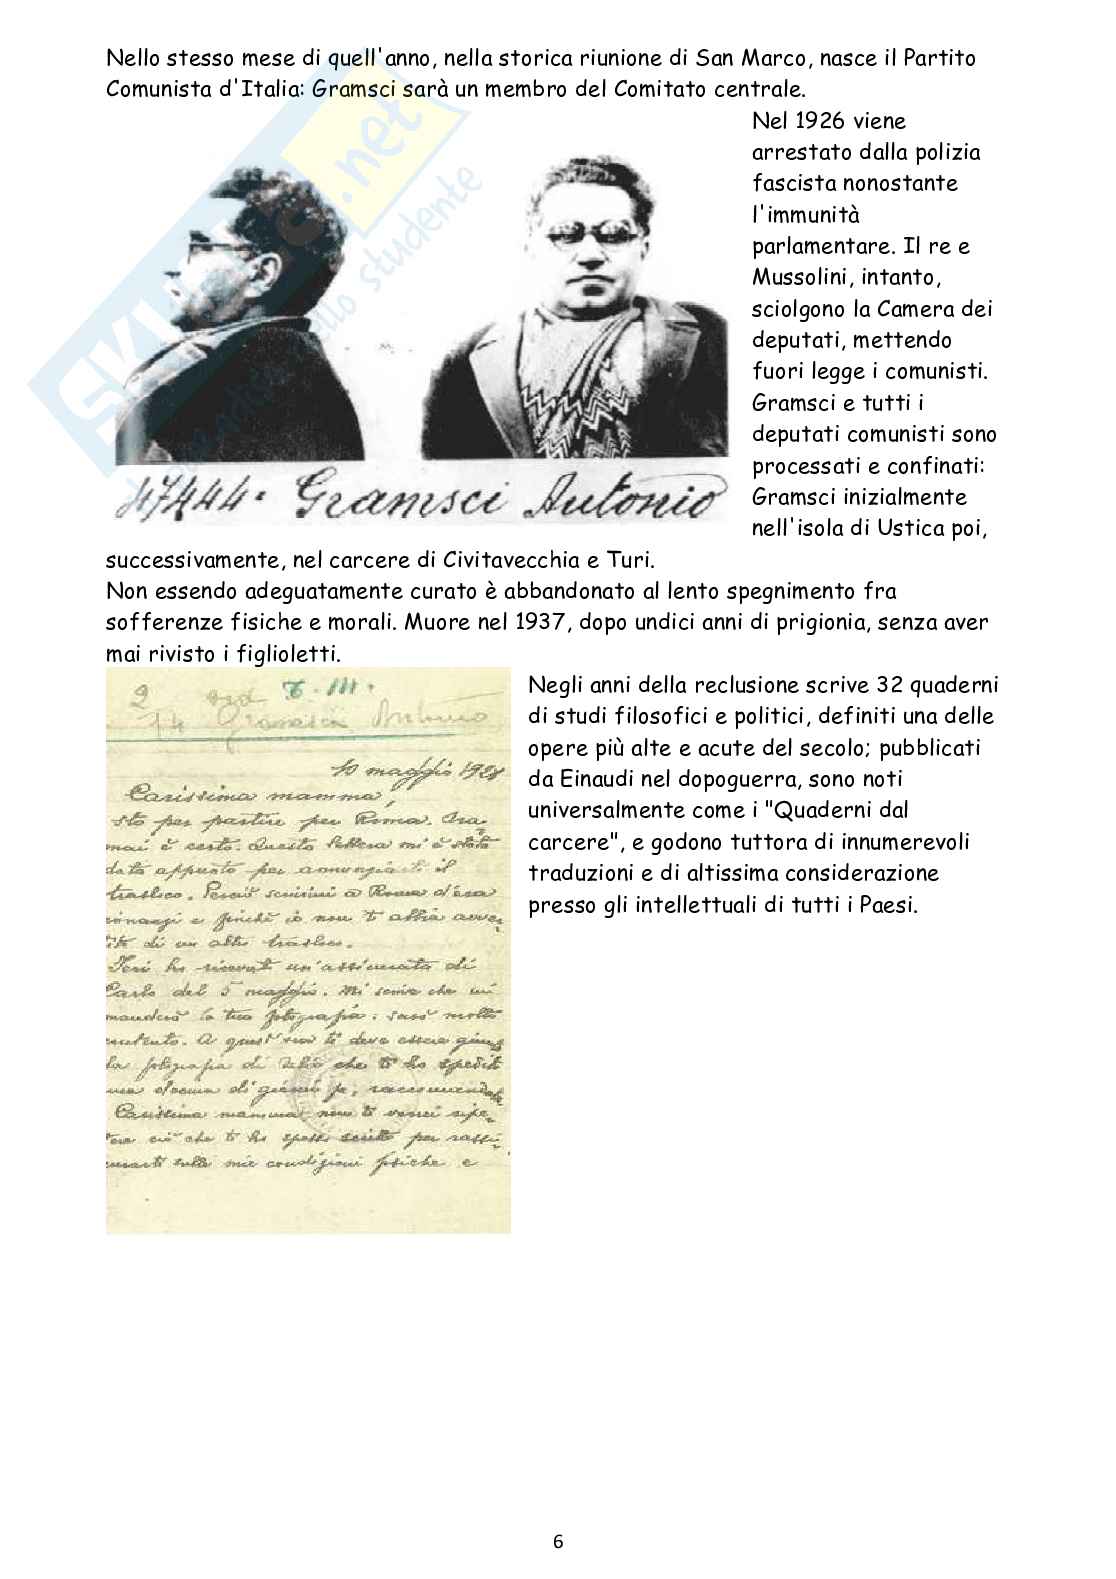 Nello stesso mese di quell'anno, nella storica riunione di San Marco, nasce il Partito
Comunista d'Italia: Gramsci sarà un membro del Comitato centrale.
Nel 1926 viene
arrestato dalla polizia
fascista nonostante
l'immunità
parlamentare. Il re e
Mussolini, intanto,
sciolgono la Camera dei
deputati, mettendo
fuori legge i comunisti.
Gramsci e tutti i
deputati comunisti sono
processati e confinati:
Gramsci inizialmente
nell'isola di Ustica poi,
.net
dello studente
47444. Gramsci Antonio
successivamente, nel carcere di Civitavecchia e Turi.
Non essendo adeguatamente curato è abbandonato al lento spegnimento fra
sofferenze fisiche e morali. Muore nel 1937, dopo undici anni di prigionia, senza aver
mai rivisto i figlioletti.
Negli anni della reclusione scrive 32 quaderni
di studi filosofici e politici, definiti una delle
opere più alte e acute del secolo; pubblicati
da Einaudi nel dopoguerra, sono noti
universalmente come i "Quaderni dal
carcere", e godono tuttora di innumerevoli
traduzioni e di altissima considerazione
presso gli intellettuali di tutti i Paesi.
Gramsci Antonio
10 maggio 1928
Carissima mamma,
sto per partire per Roma. Ora-
mai è certo. Questa lettera mi è stata
data appunto per annunziarti il
trasloco. Perciò scrivimi a Roma d'ora
innanzi e finché io non ti abbia avver-
tito di un altro trasloco.
Ieri ho ricevuto un'assicurata di
Carlo del 5 maggio. Mi scrive che mi
manderà la tua fotografia: sarò molto
contento. A quest'ora ti deve essere giunta
la fotografia di Delio che ti ho spedito
una decina di giorni fa, raccomandata
Carissima mamma, non ti vorrei ripe-
tere ciò che ti ho spesso scritto per rassi-
curarti sulle mie condizioni fisiche e
6